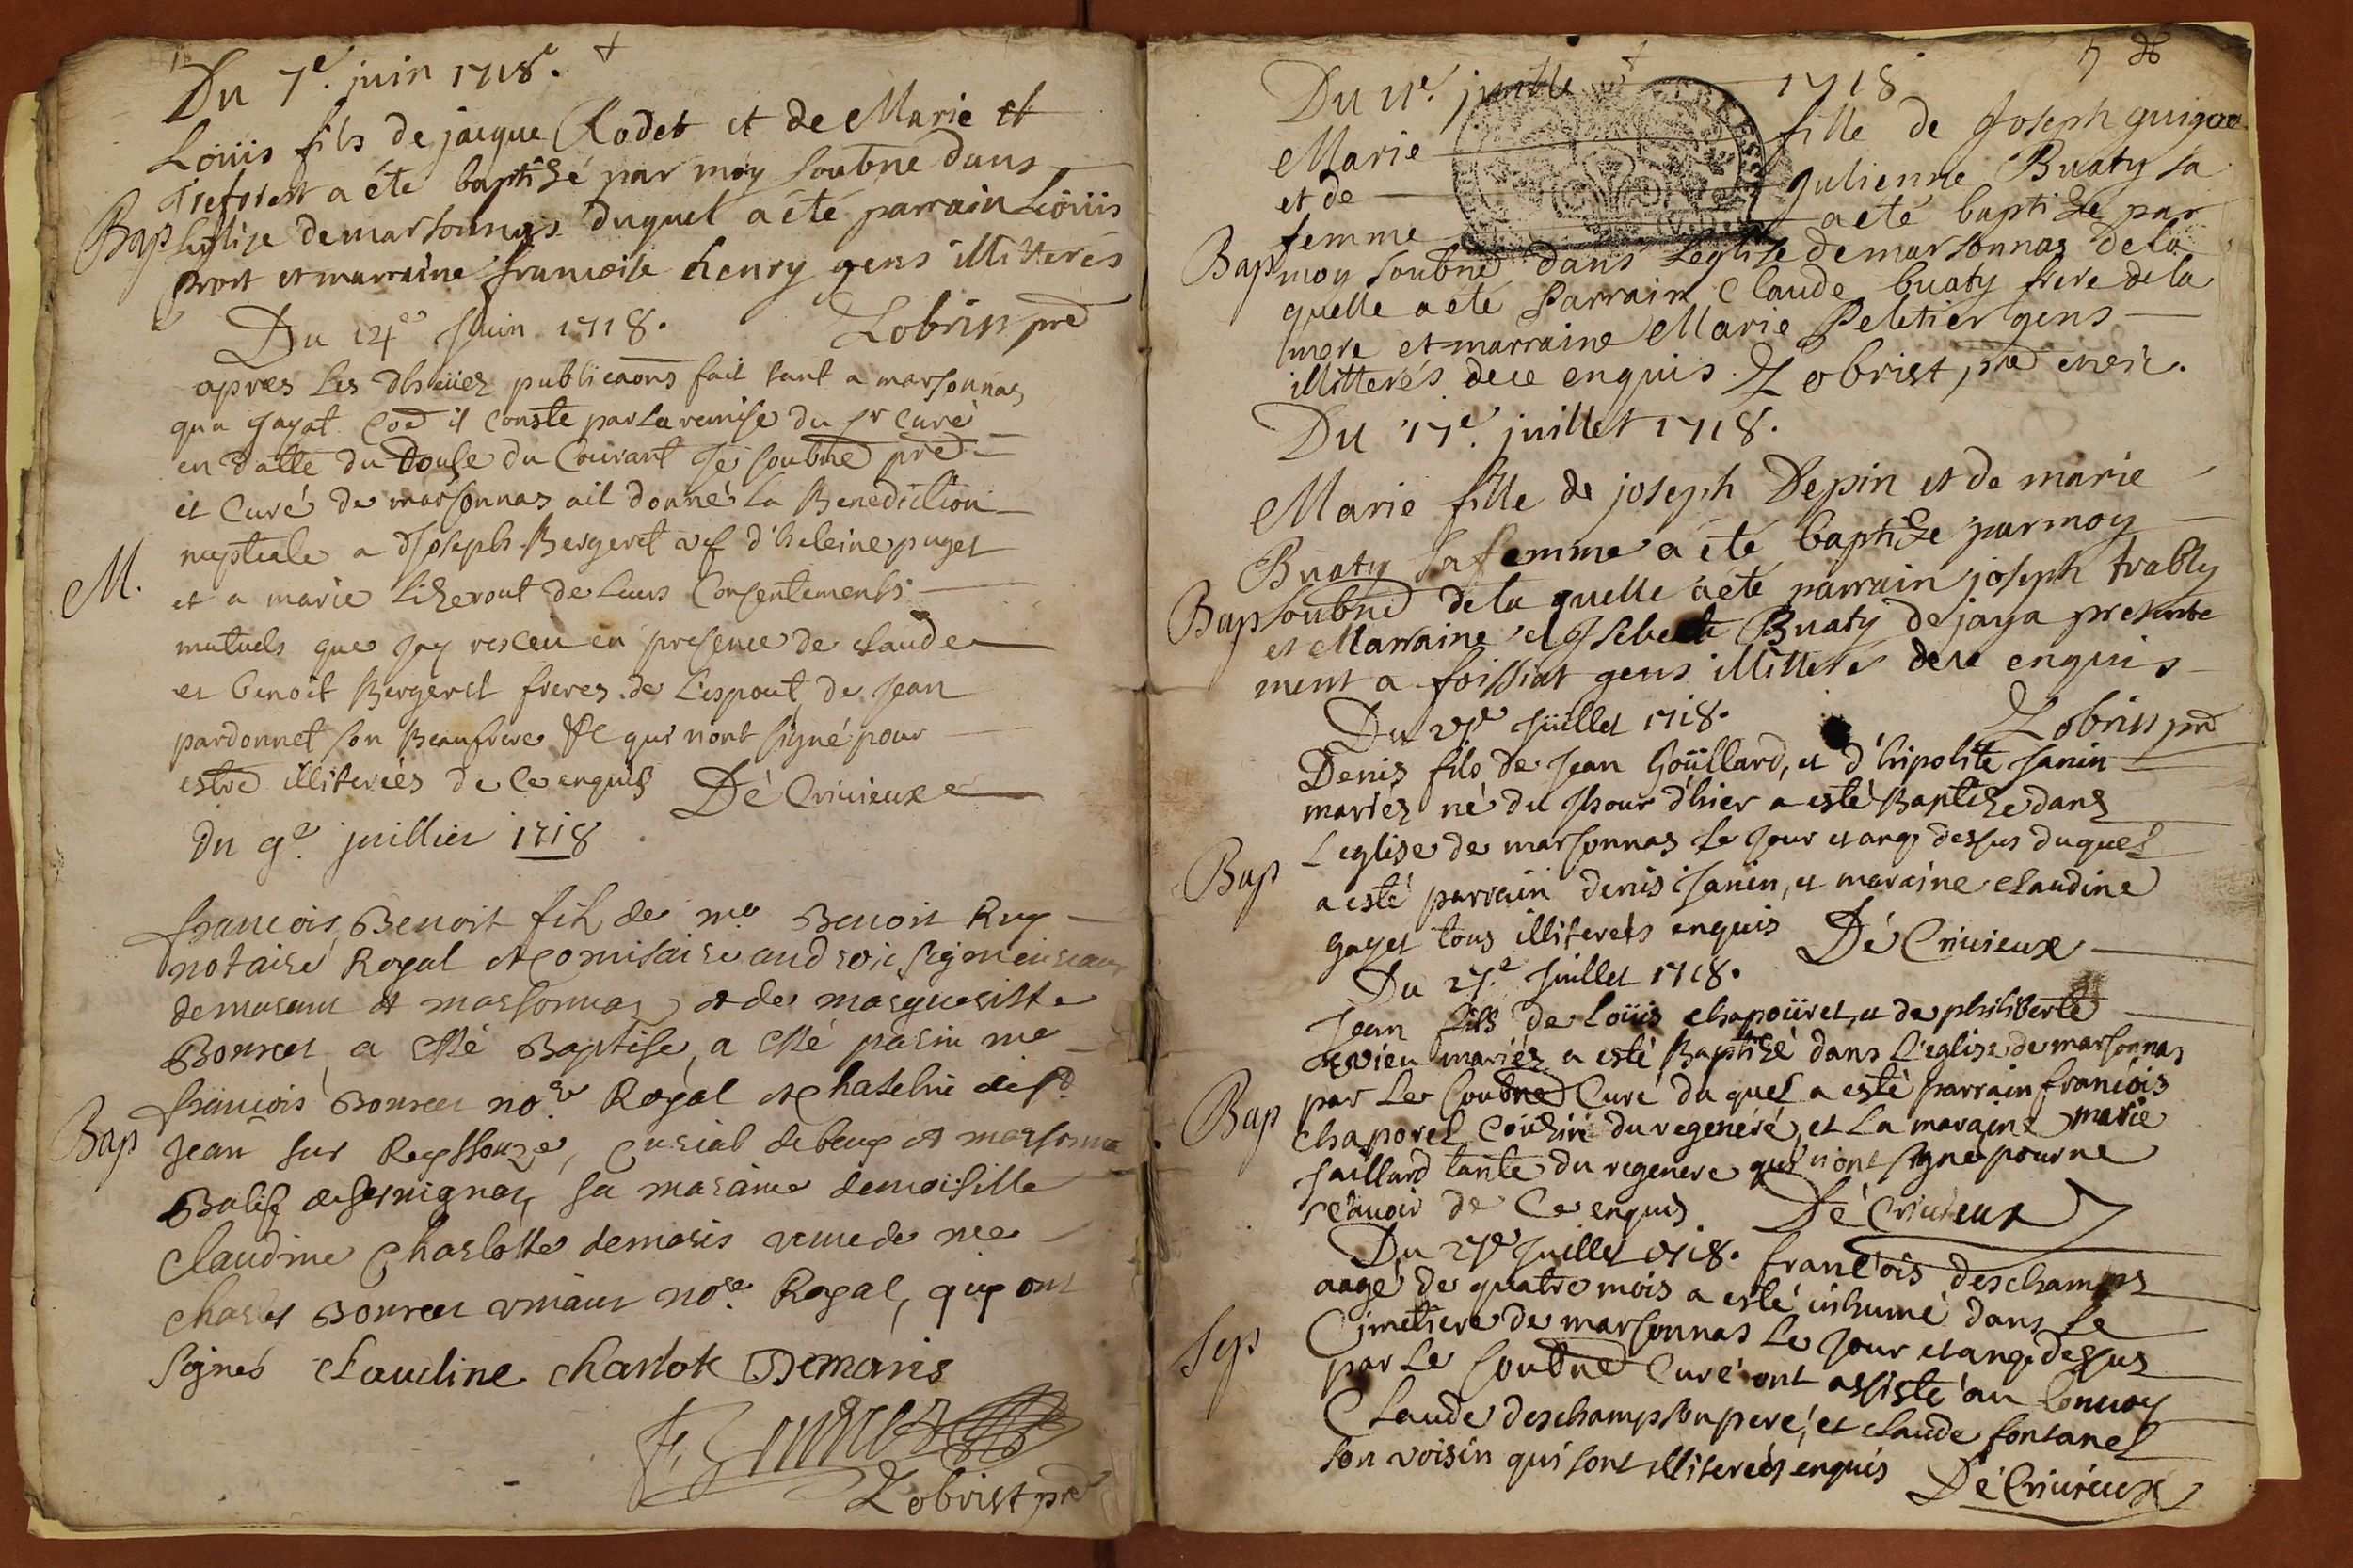 Du 7e. juin 1718.
Loüis fils de jacque Rodet et de Marie
Treforest a été baptizé par moy soubné dans
Bap
l'eglize de marsonnas duquel a été parrain Loüis
prost et marraine francoise henry gens illitterés
Du 14e Juin 1718. Lobrist pre
apres les dheües publicaons fait tant a marsonnas
qu'a Jayat Coe il conste par la remise du sr Curé
en datte du douse du Courant Je soubné pre
et Curé de marsonnas ait donné la Benediction
M.
nuptiale a Joseph Bergeret vef d'heleine puget
et a marie Lizerout de Leurs Consentements
mutuels que Jay resceu en presence de claude
et benoit Bergeret freres de L'espout, de Jean
pardonnet son Beaufrere &c qui n'ont signé pour
estre illiterées de Ce enquis Dé Crivieux
Du 9e. juillier 1718
francois Benoit fils de me Benoit Ruy
notaire Royal et Comisaire aud roit signeuriaux
de marsonnas et de margueritte
Bourcet a esté Baptise, a esté parin me
francois Bourcet nore Royal et Chatelin de st
Bap
Jean sur Reyssouze, Curial de beup et marsonna
Balif de sermignat, sa maraine demoiselle
Claudine Charlotte demaris veuve de me
Charles Bourcet vivant nore Royal, quy ont
signés claudine charlote Demaris
F. Bourcet
Lobrist pre
5
Du 11e. juille 1718
Marie fille de Joseph guigue
et de Julienne Buaty sa
femme a eté baptize par
Bap
moy soubné dans l'eglize de marsonnas de la
quelle a eté Parrain Claude buaty frere de la
mere et marraine Marie Peletier gens
illitterés de ce enquis. Lobrist, pre
Du 17e. juillet 1718.
Marie fille de joseph Depin et de marie
Buaty sa femme a été baptize par moy
Bap
soubné de la quelle a eté parrain joseph trably
et Marraine Buaty de jaya presente
ment a foissiat gens illitteré de ce enquis
Du 27e Jüillet 1718. Lobrist pre
Denis fils de Jean Goüllard, et d'hipolite Janin
mariéz né du Jhour d'hier a esté Baptize dans
L'eglise de marsonnas Le Jour et an q dessus duquel
Bap
a esté parrain denis Janin, et maraine claudine
gayet tous illiterées enquis Dé Crivieux
Du 27.e Juillet 1718.
Jean fils de Loüis chapoüret, et de philiberte
mariéz a esté Baptizé dans L'eglise de marsonnas
par Le soubne Curé du quel a esté parrain francois
Bap
chaporet Couziné du regenéré, et La maraine marie
Jaillard tante du regenere qui n'ont signe pour ne
scavoir de Ce enquis Dé Crivieux
Du 27e Juillet 1718. francois deschamps
aagé de quatre mois a esté inhumé dans Le
Cimetiere de marsonnas Le Jour et an q dessus
Sep
par Le soubne Curé ont assisté au Convoy
Claude deschamp son pere, et claude fontanel
son voisin qui sont illiterées enquis Dé Crivieux